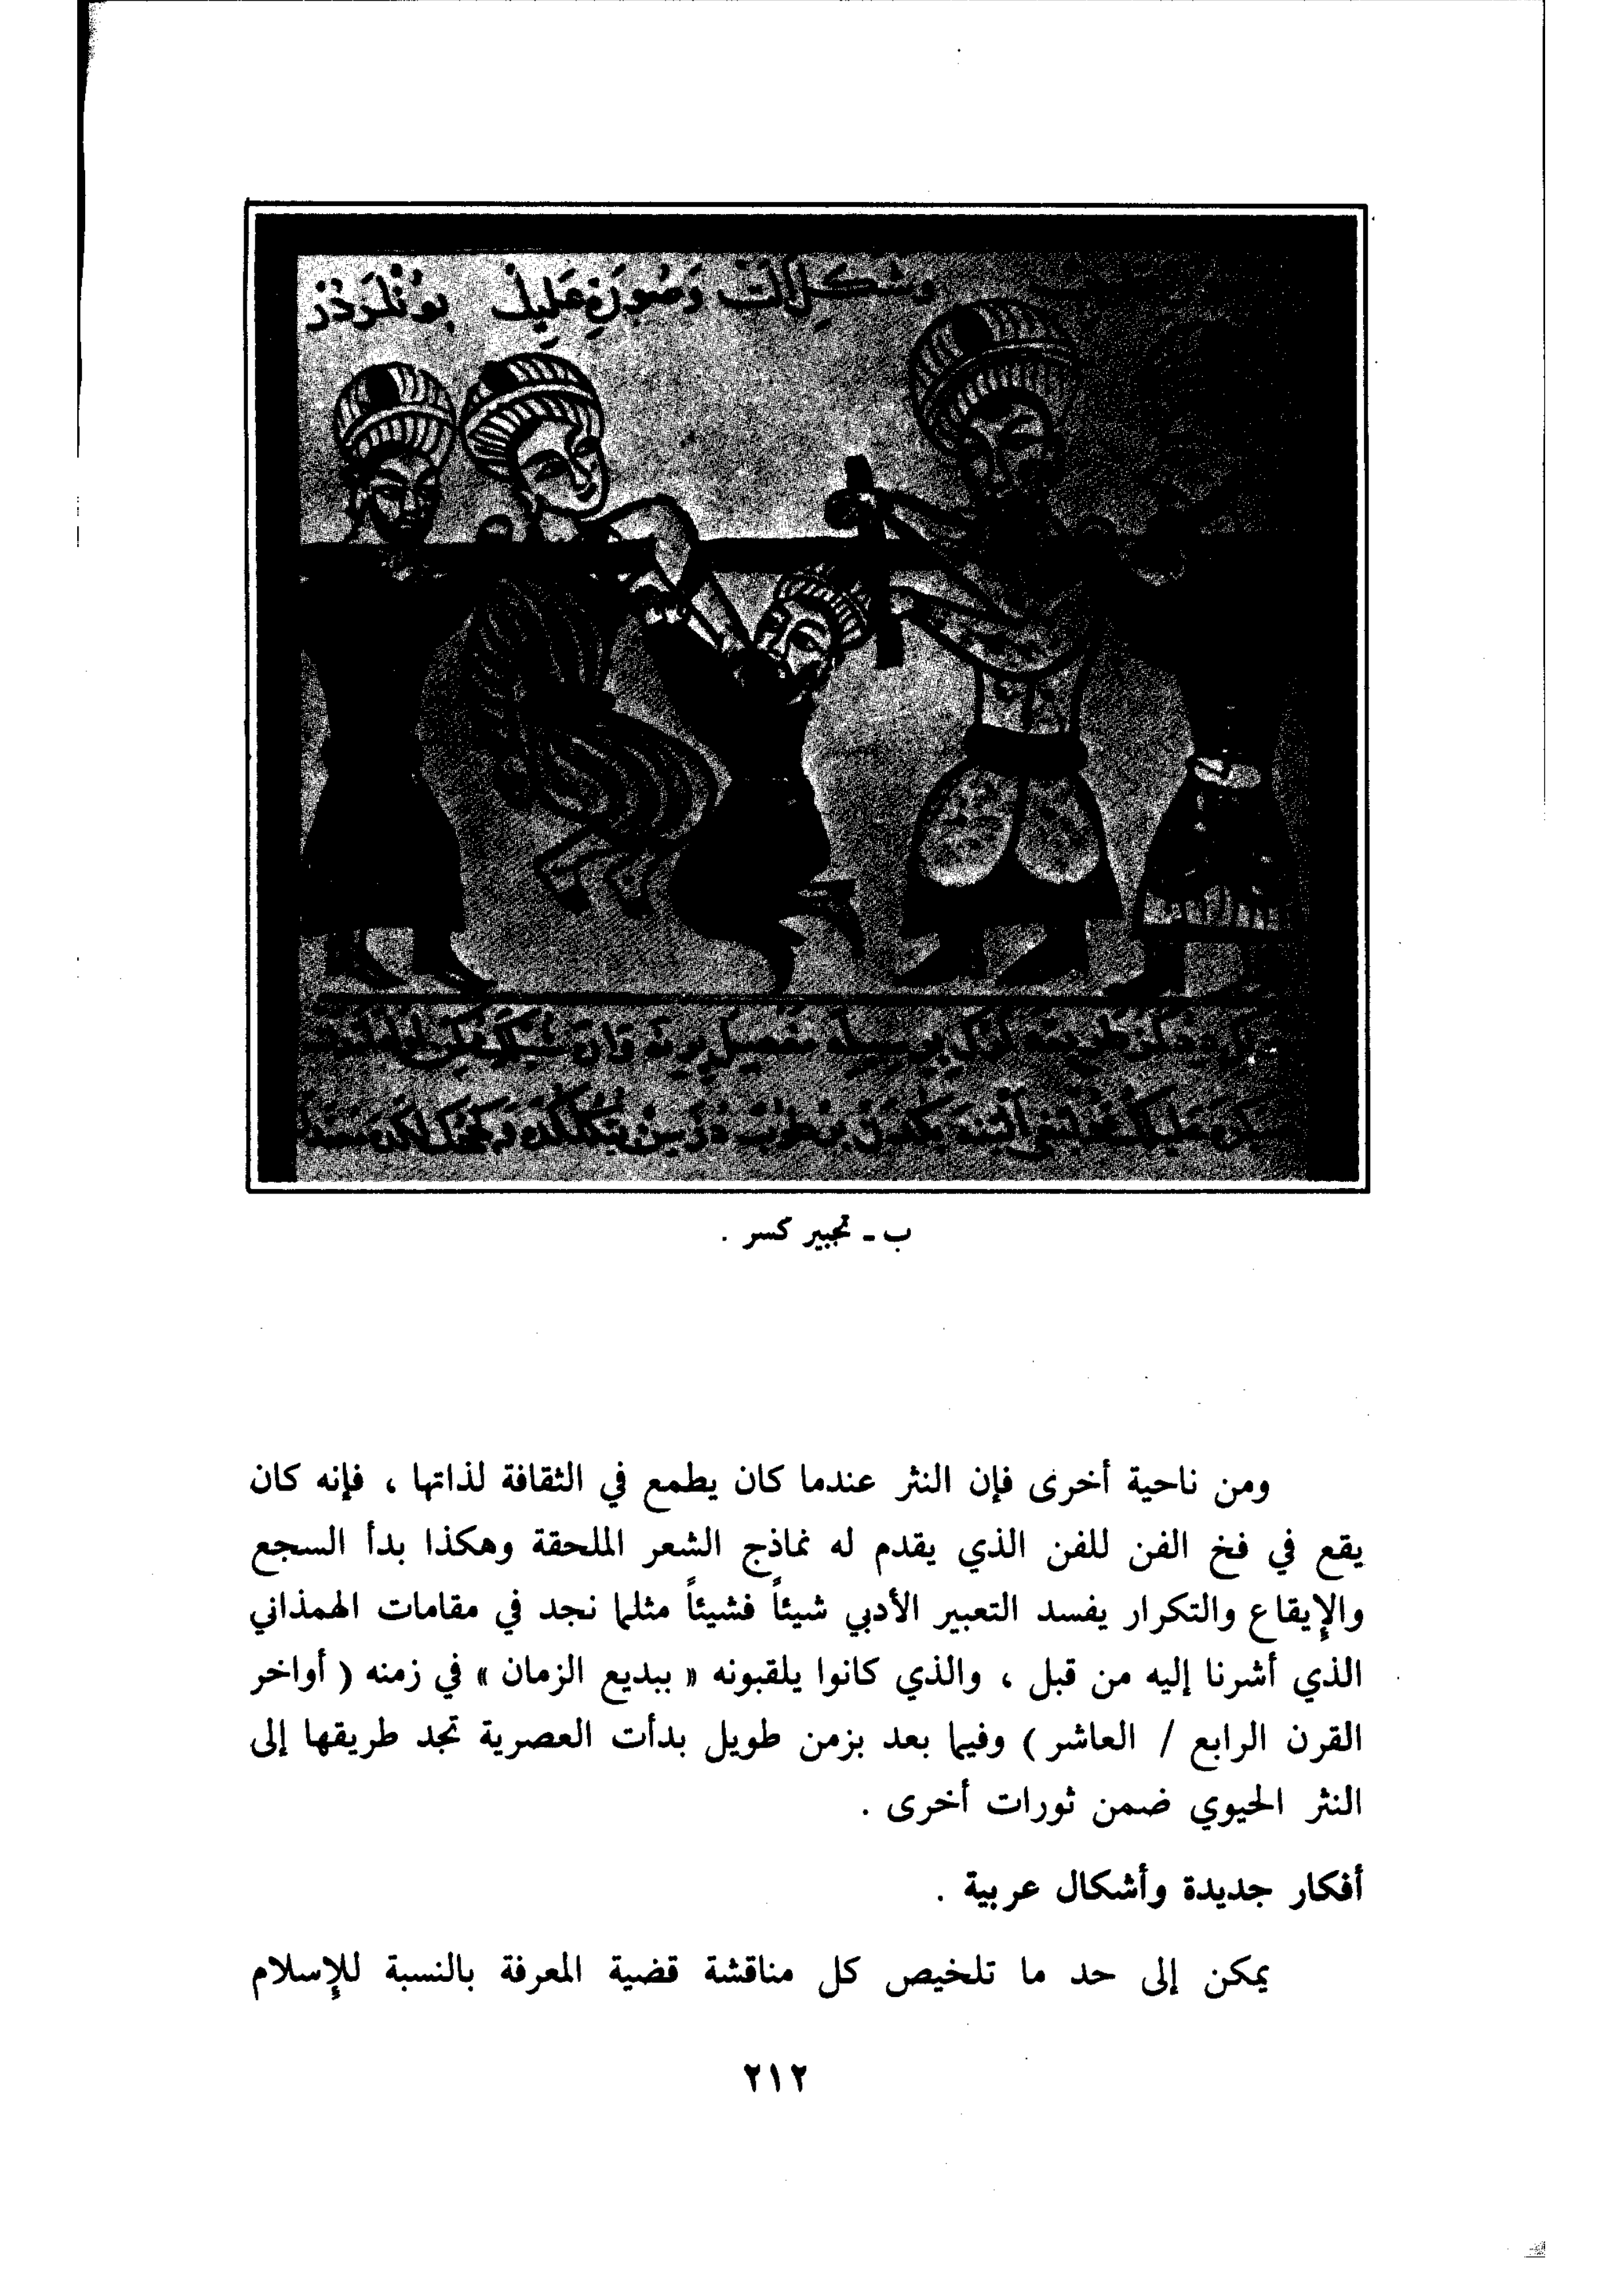 وشكل آلت وصورة عليل بو نلردر
ب ـ تجبير كسر .
ومن ناحية أخرى فإن النثر عندما كان يطمع في الثقافة لذاتها ، فإنه كان
يقع في فخ الفن للفن الذي يقدم له نماذج الشعر الملحقة وهكذا بدأ السجع
والإيقاع والتكرار يفسد التعبير الأدبي شيئاً فشيئاً مثلما نجد في مقامات الهمذاني
الذي أشرنا إليه من قبل ، والذي كانوا يلقبونه « ببديع الزمان » في زمنه ( أواخر
القرن الرابع / العاشر ) وفيما بعد بزمن طويل بدأت العصرية تجد طريقها إلى
النثر الحيوي ضمن ثورات أخرى .
أفكار جديدة وأشكال عربية .
يمكن إلى حد ما تلخيص كل مناقشة قضية المعرفة بالنسبة للإسلام
٢١٢